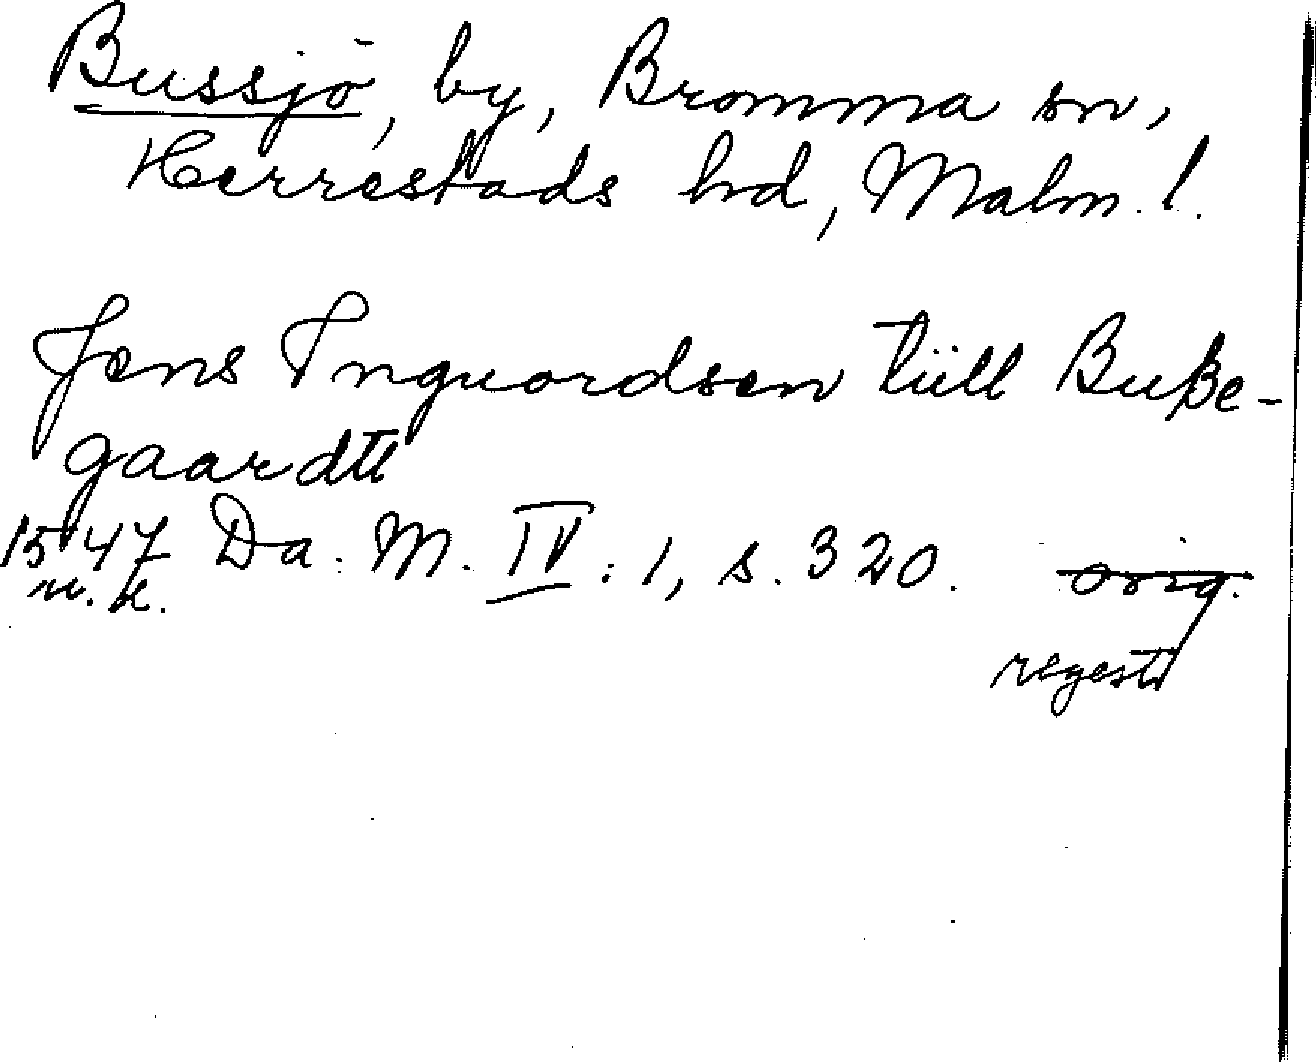 Bussjö, by, Bromma sn,
Herrestads hd, Malm. l.
Jens Inguordsen tiill Buße-
gaardtt
1547 Da. M. IV : 1, s. 320. orig.
u. k.
regest